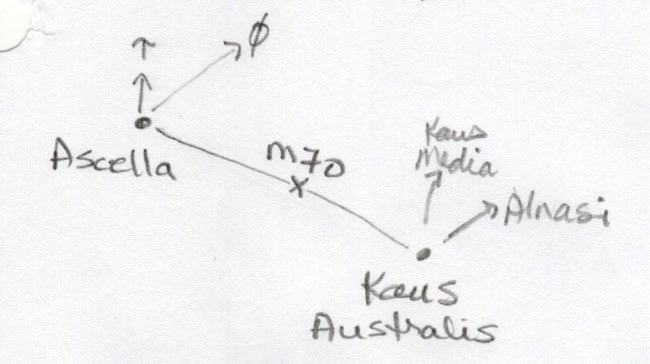 τ
φ
Ascella
m70
x
Kaus
Media
Alnasi
Kaus
Australis